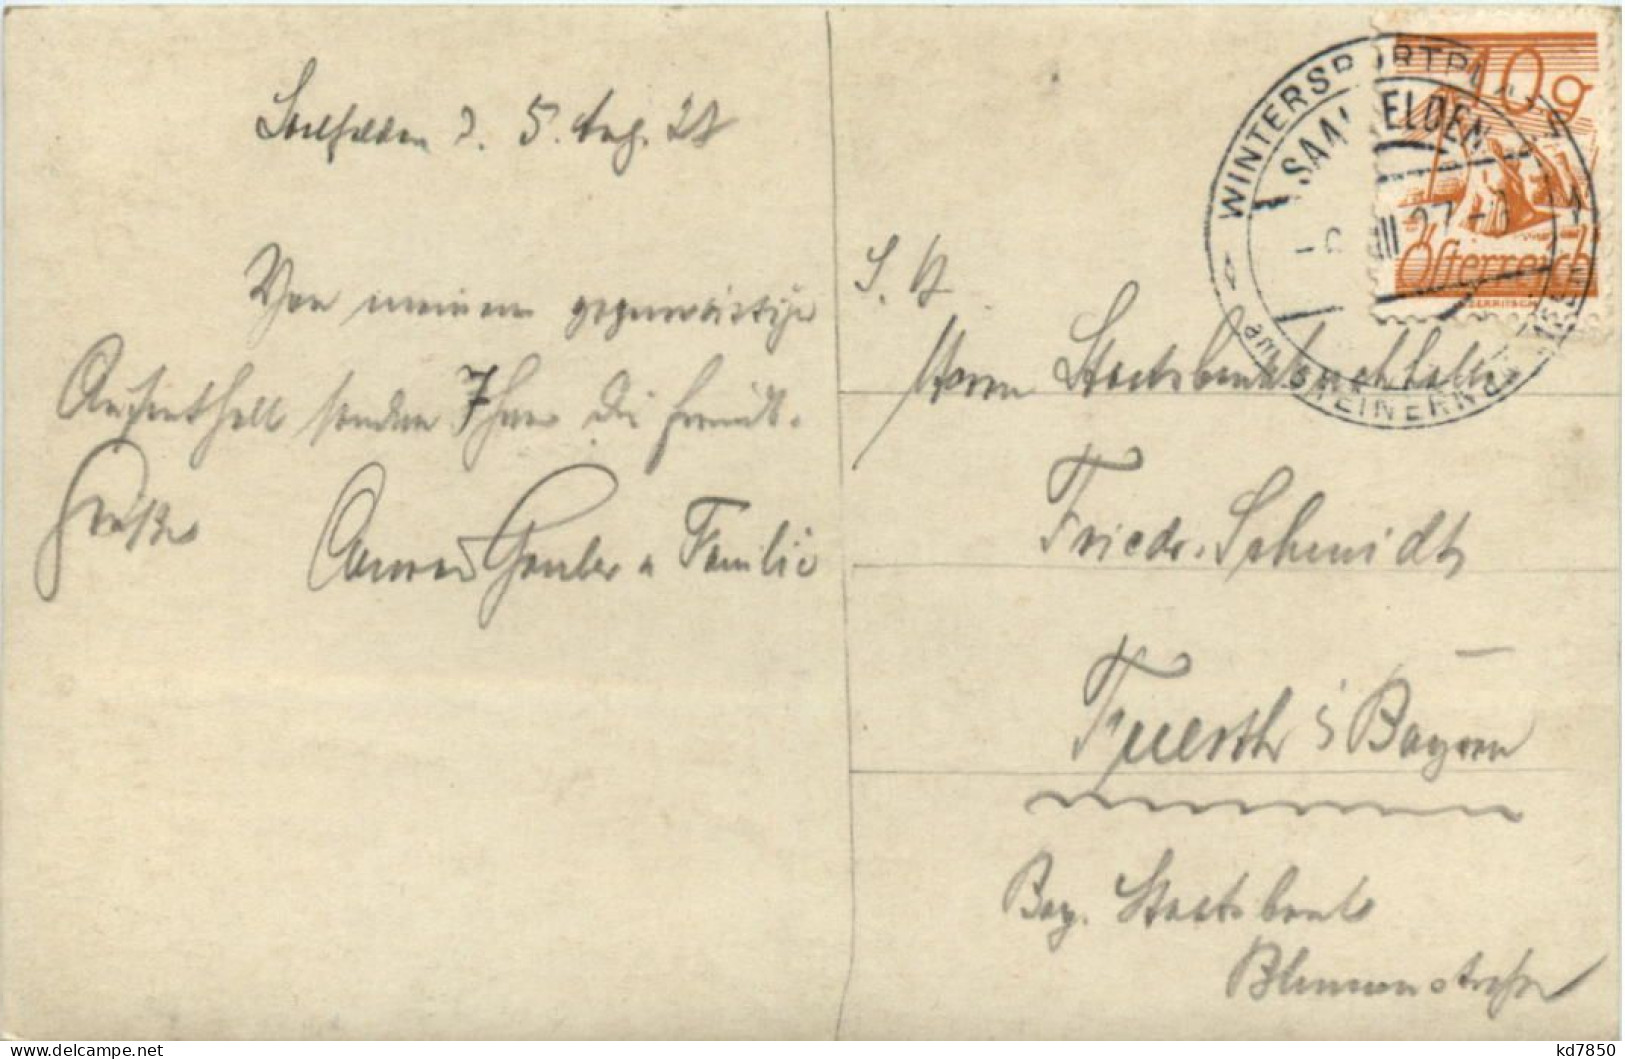 Saalfelden d. 5. Aug. 27
Von meinem gegenwärtigen
Aufenthalt senden Ihnen die freundl.
Grüße
Conrad Gruber u Familie
S. H.
Herrn Staatsbankbuchhalter
Friedr. Schmidt
Fuerth i Bayern
Bay. Staatsbank
Blumenstraße
WINTERSPORTPLATZ
SAALFELDEN
VIII 27
am STEINERNEN MEER
10g
Österreich
kd7850